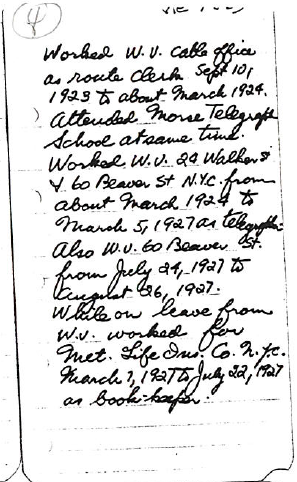 4
Worked W.U. Cable office
as route clerk Sept 10,
1923 to about March 1924.
Attended Morse Telegraph
School at same time.
Worked W.U. 24 Walker St
& 60 Beaver St N.Y.C. from
about March 1924 to
March 5, 1927 as
Also W.U. 60 Beaver St.
from July 24, 1927 to
August 26, 1927.
While on leave from
W.U. worked for
Met. Life Ins. Co. N.Y.C.
March 7, 1927 to July 22, 1927
as book-keeper.